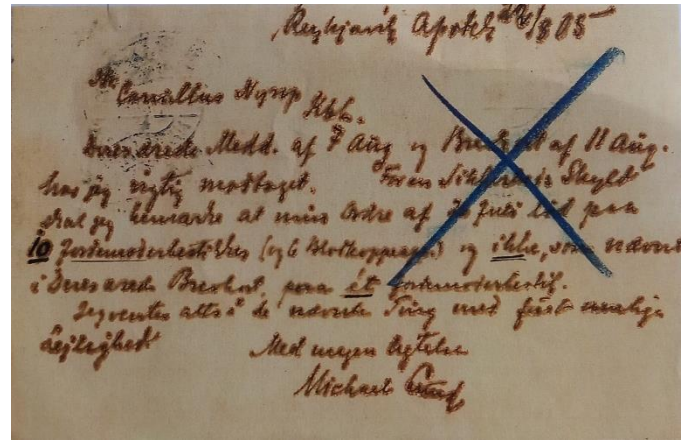 Reykjavik Apotek 20/8 05
Hr. Camillus Nyrop Kbh.
Deres ærede Medd. af 7 Aug og Brevkort af 11 Aug.
har jeg rigtig modtaget. For en Sikkerheds Skyld
skal jeg bemærke at min Ordre af Juli lød paa
10 Jordemoderbestikker (og 6 Blodkopper) og ikke, som nævnt
i Deres ærede Brevkort, paa ét Jordemoderbestik.
Jeg venter altså de nævnte Ting med først mulige
Lejlighed.
Med megen Agtelse
Michael Lund